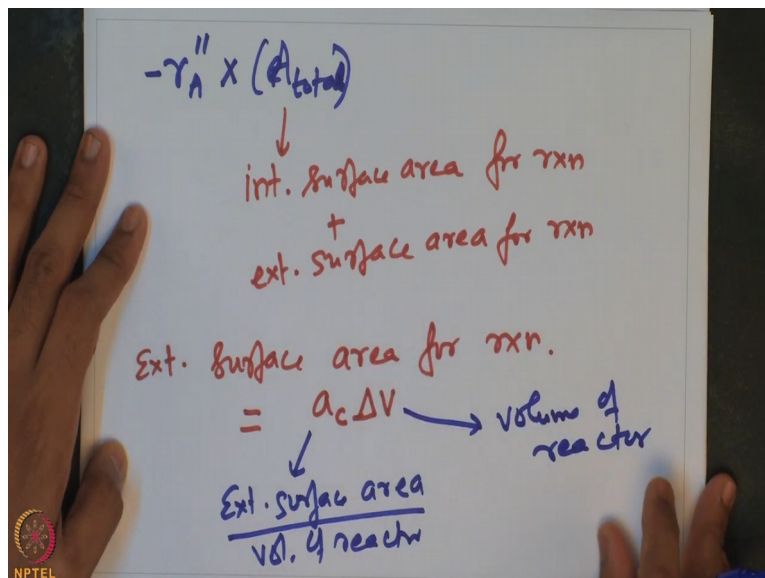 -r_A'' × (A_total)
int. surface area for rxn
+
ext. surface area for rxn
Ext. surface area for rxn.
= a_c ΔV
volume of reactor
Ext. surface area
vol. of reactor
NPTEL